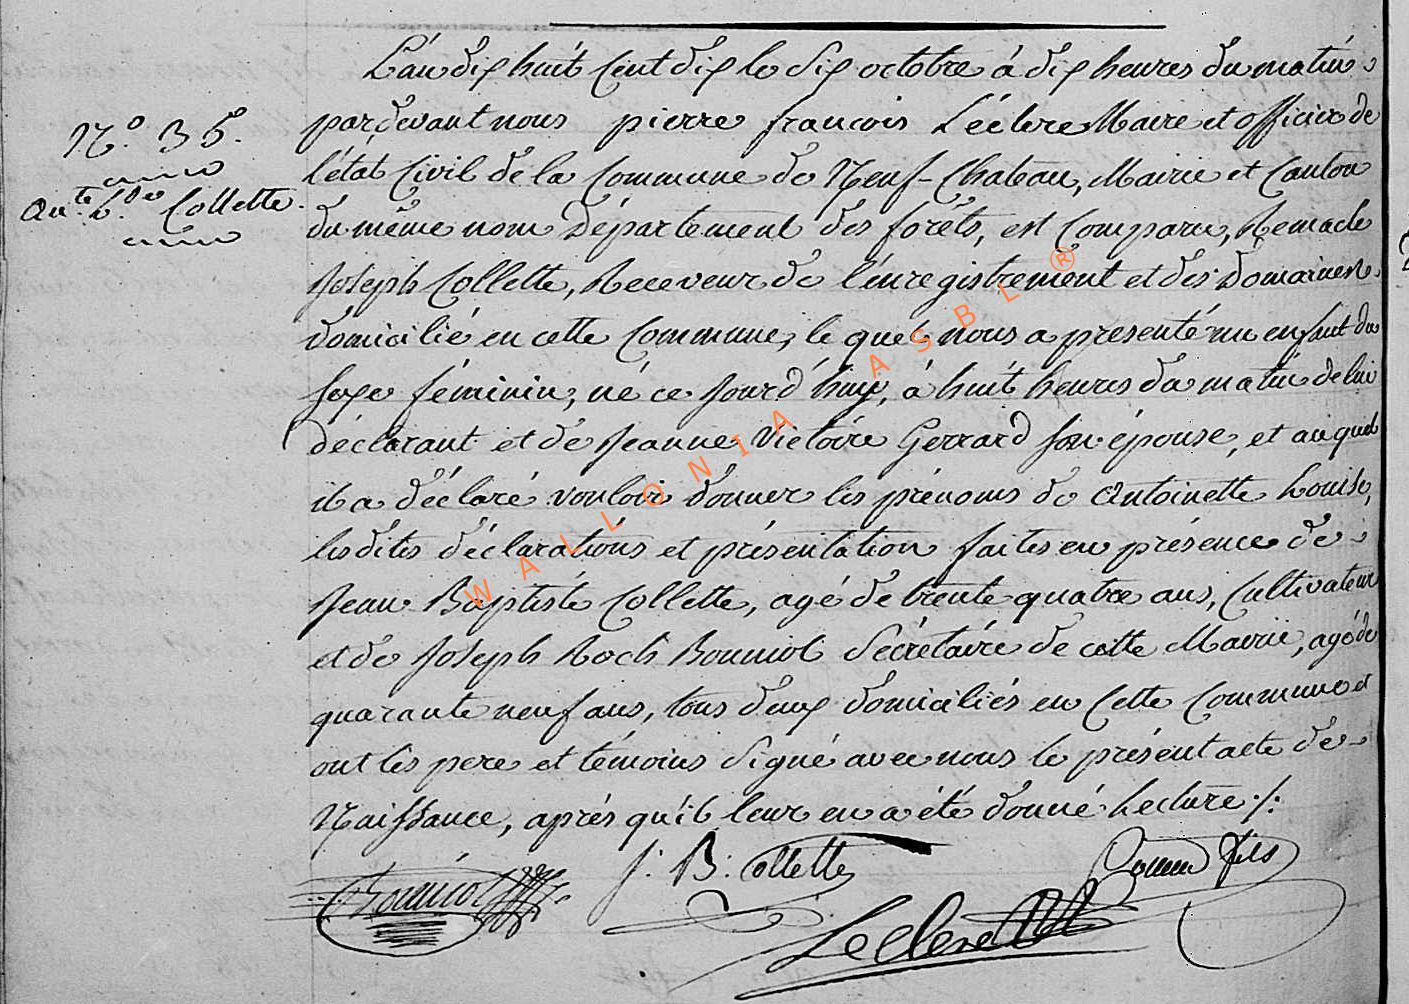 L'an dix huit Cent dix le dix octobre à dix heures du matin
N.° 35.
pardevant nous pierre françois Léclere Maire et officier de
l'état Civil de la Commune de Neuf-Chateau, Mairie et Canton
An.te L.se Collette
du même nom Département des forêts, est Comparu, Remacle
Joseph Collette, Receveur de l'énregistrement et des Domaines
domicilié en cette Commune, le quel nous a présenté un enfant du
sexe féminin, né ce Jourd'huy, à huit heures du matin de lui
déclarant et de Jeanne Victoire Gerrard son épouse, et auquel
il a déclaré vouloir donner les prénoms de Antoinette Louise,
lesdites déclarations et présentation faites en présence de
Jean Baptiste Collette, agé de trente quatre ans, Cultivateur
et de Joseph Roch Bouniol Sécrétaire de cette Mairie, agé de
quarante neuf ans, tous deux domiciliés en Cette Commune et
ont les pere et témoins Signé avec nous le présent acte de
Naissance, après qu'il leur en a été donné Lecture ./.
Bouniol J: B: Collette fils
Leclere
WALLONIA ASBL ®